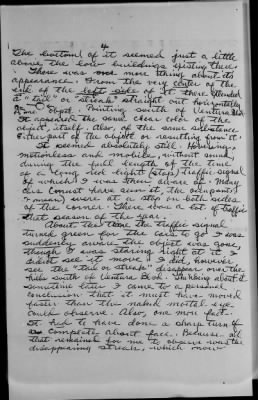 4
The bottom of it seemed just a little
above the low buildings existing there.
There was one more thing about its
appearance. From the very center of the
end of the left side of it there extended
a "tail" or streak" straight out horizontally
Pointing south of Ventura Blvd
It appeared the same clear color of the
object, itself. Also, of the same substance
Either part of the object or resulting from it.
It seemed absolutely still. Hovering,
motionless and mobile, without sound
during the full length of the time
of a long red light (stop) traffic signal
of which I was then aware of. Many
cars (must have seen it the occupants)
I mean) were at a stop on both sides
of the corner. There's also a lot of traffic
that season of the year.
About the time the traffic signal
turned green for the cars to go I was
suddenly aware the object was gone,
though I was staring right at it I
didn't see it move. I did, however
see the "tail or streak" disappear over the
hills south of Ventura Blvd. Thinking about it
sometime later I came to a personal
conclusion that it must have moved
faster than the naked mortal eye
could observe. Also, one more fact.
It had to have done a sharp turn if
complete about face. Because all
that remained for me to observe was the
disappearing streak, which now